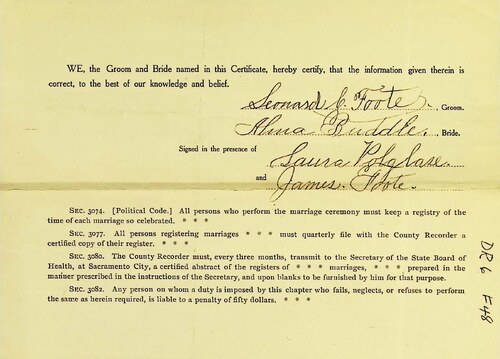 WE, the Groom and Bride named in this Certificate, hereby certify, that the information given therein is
correct, to the best of our knowledge and belief.
Leonard C. Foote. Groom.
Alma Buddle. Bride.
Signed in the presence of
Laura Polglase.
and
James Foote.
SEC. 3074. [Political Code.] All persons who perform the marriage ceremony must keep a registry of the
time of each marriage so celebrated. * * *
SEC. 3077. All persons registering marriages * * * must quarterly file with the County Recorder
a certified copy of their register. * * *
SEC. 3080. The County Recorder must, every three months, transmit to the Secretary of the State Board of
Health, at Sacramento City, a certified abstract of the registers of * * * marriages, * * * prepared in the
manner prescribed in the instructions of the Secretary, and upon blanks to be furnished by him for that purpose.
SEC. 3082. Any person on whom a duty is imposed by this chapter who fails, neglects, or refuses to perform
the same as herein required, is liable to a penalty of fifty dollars. * * *
DR 6 F48